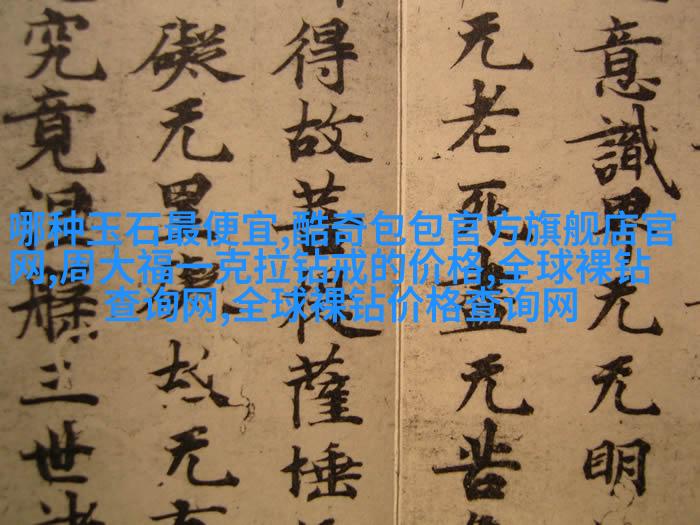 哪种玉石最便宜,酷奇包包官方旗舰店官
网,周大福一克拉钻戒的价格,全球裸钻
查询网,全球裸钻价格查询网
意識界无无明
无老死盡无苦
得故菩提薩埵
礙无罣礙故无有
究竟涅槃三世諸